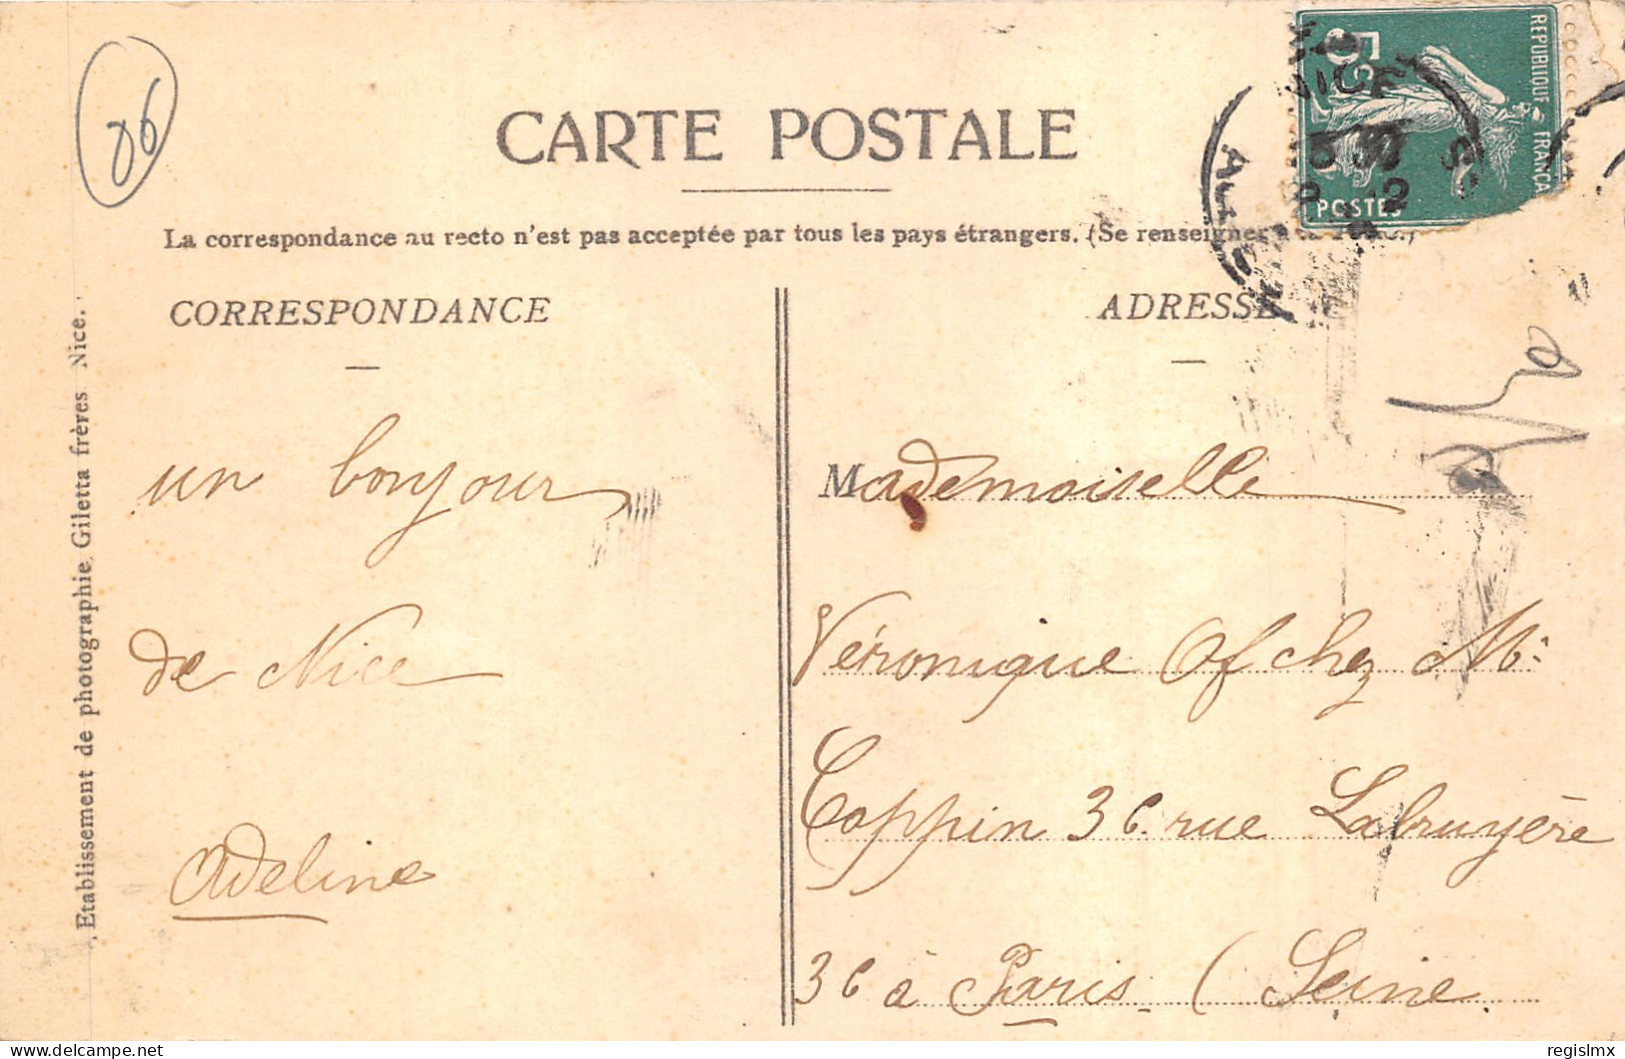 06
CARTE POSTALE
La correspondance au recto n'est pas acceptée par tous les pays étrangers. (Se renseigner
REPUBLIQUE FRANÇA
5c
POSTES
NICE
CORRESPONDANCE
ADRESSE
Etablissement de photographie Giletta frères Nice.
un bonjour
de Nice
Adeline
Mademoiselle
Véronique Of chez Mr
Coppin 36 rue Labruyère
36 à Paris (Seine
regislmx